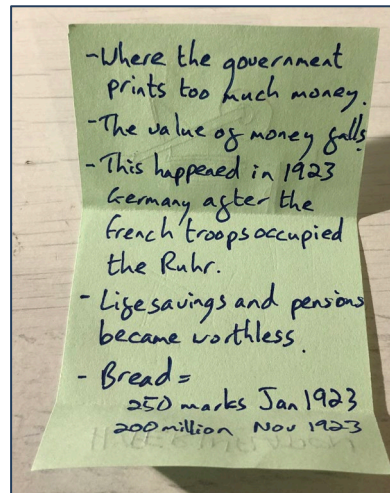 -Where the government
prints too much money.
-The value of money falls
-This happened in 1923
Germany after the
French troops occupied
the Ruhr.
- Life savings and pensions
became worthless.
- Bread =
250 marks Jan 1923
200 million Nov 1923